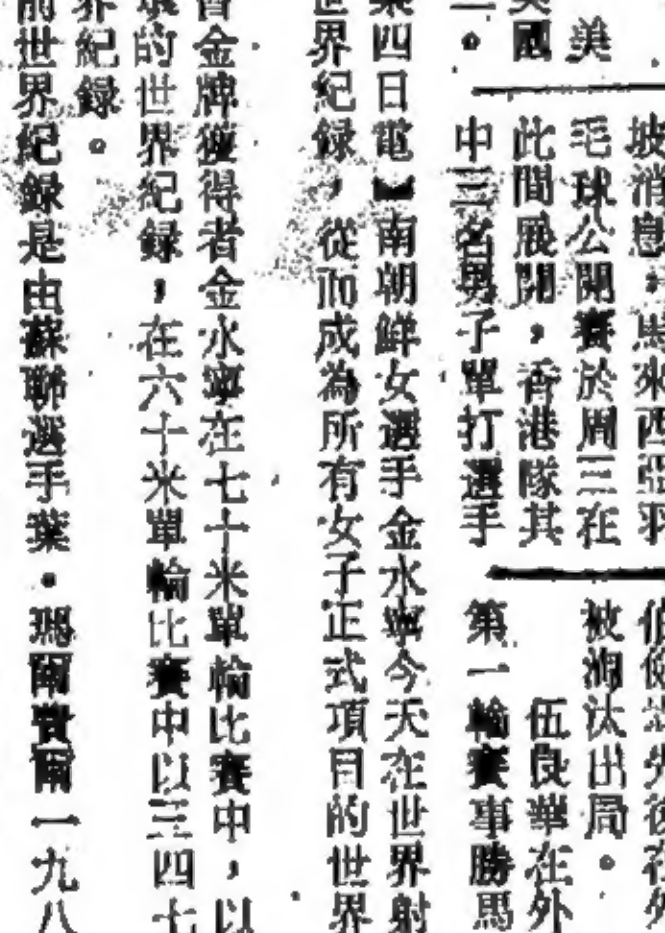 坡消息，馬來西亞羽
毛球公開賽於周三在
此間展開，香港隊其
中三名男子單打選手
先後在外
被淘汰出局。
伍良華在外
第一輪賽事勝馬
美
英國
二。
四日電　南朝鮮女選手金水寧今天在世界射
世界紀錄，從而成為所有女子正式項目的世界
金牌獲得者金水寧在七十米單輪比賽中，以
的世界紀錄，在六十米單輪比賽中以三四七
界紀錄。
前世界紀錄是由蘇聯選手葉·瑪爾賽爾一九八